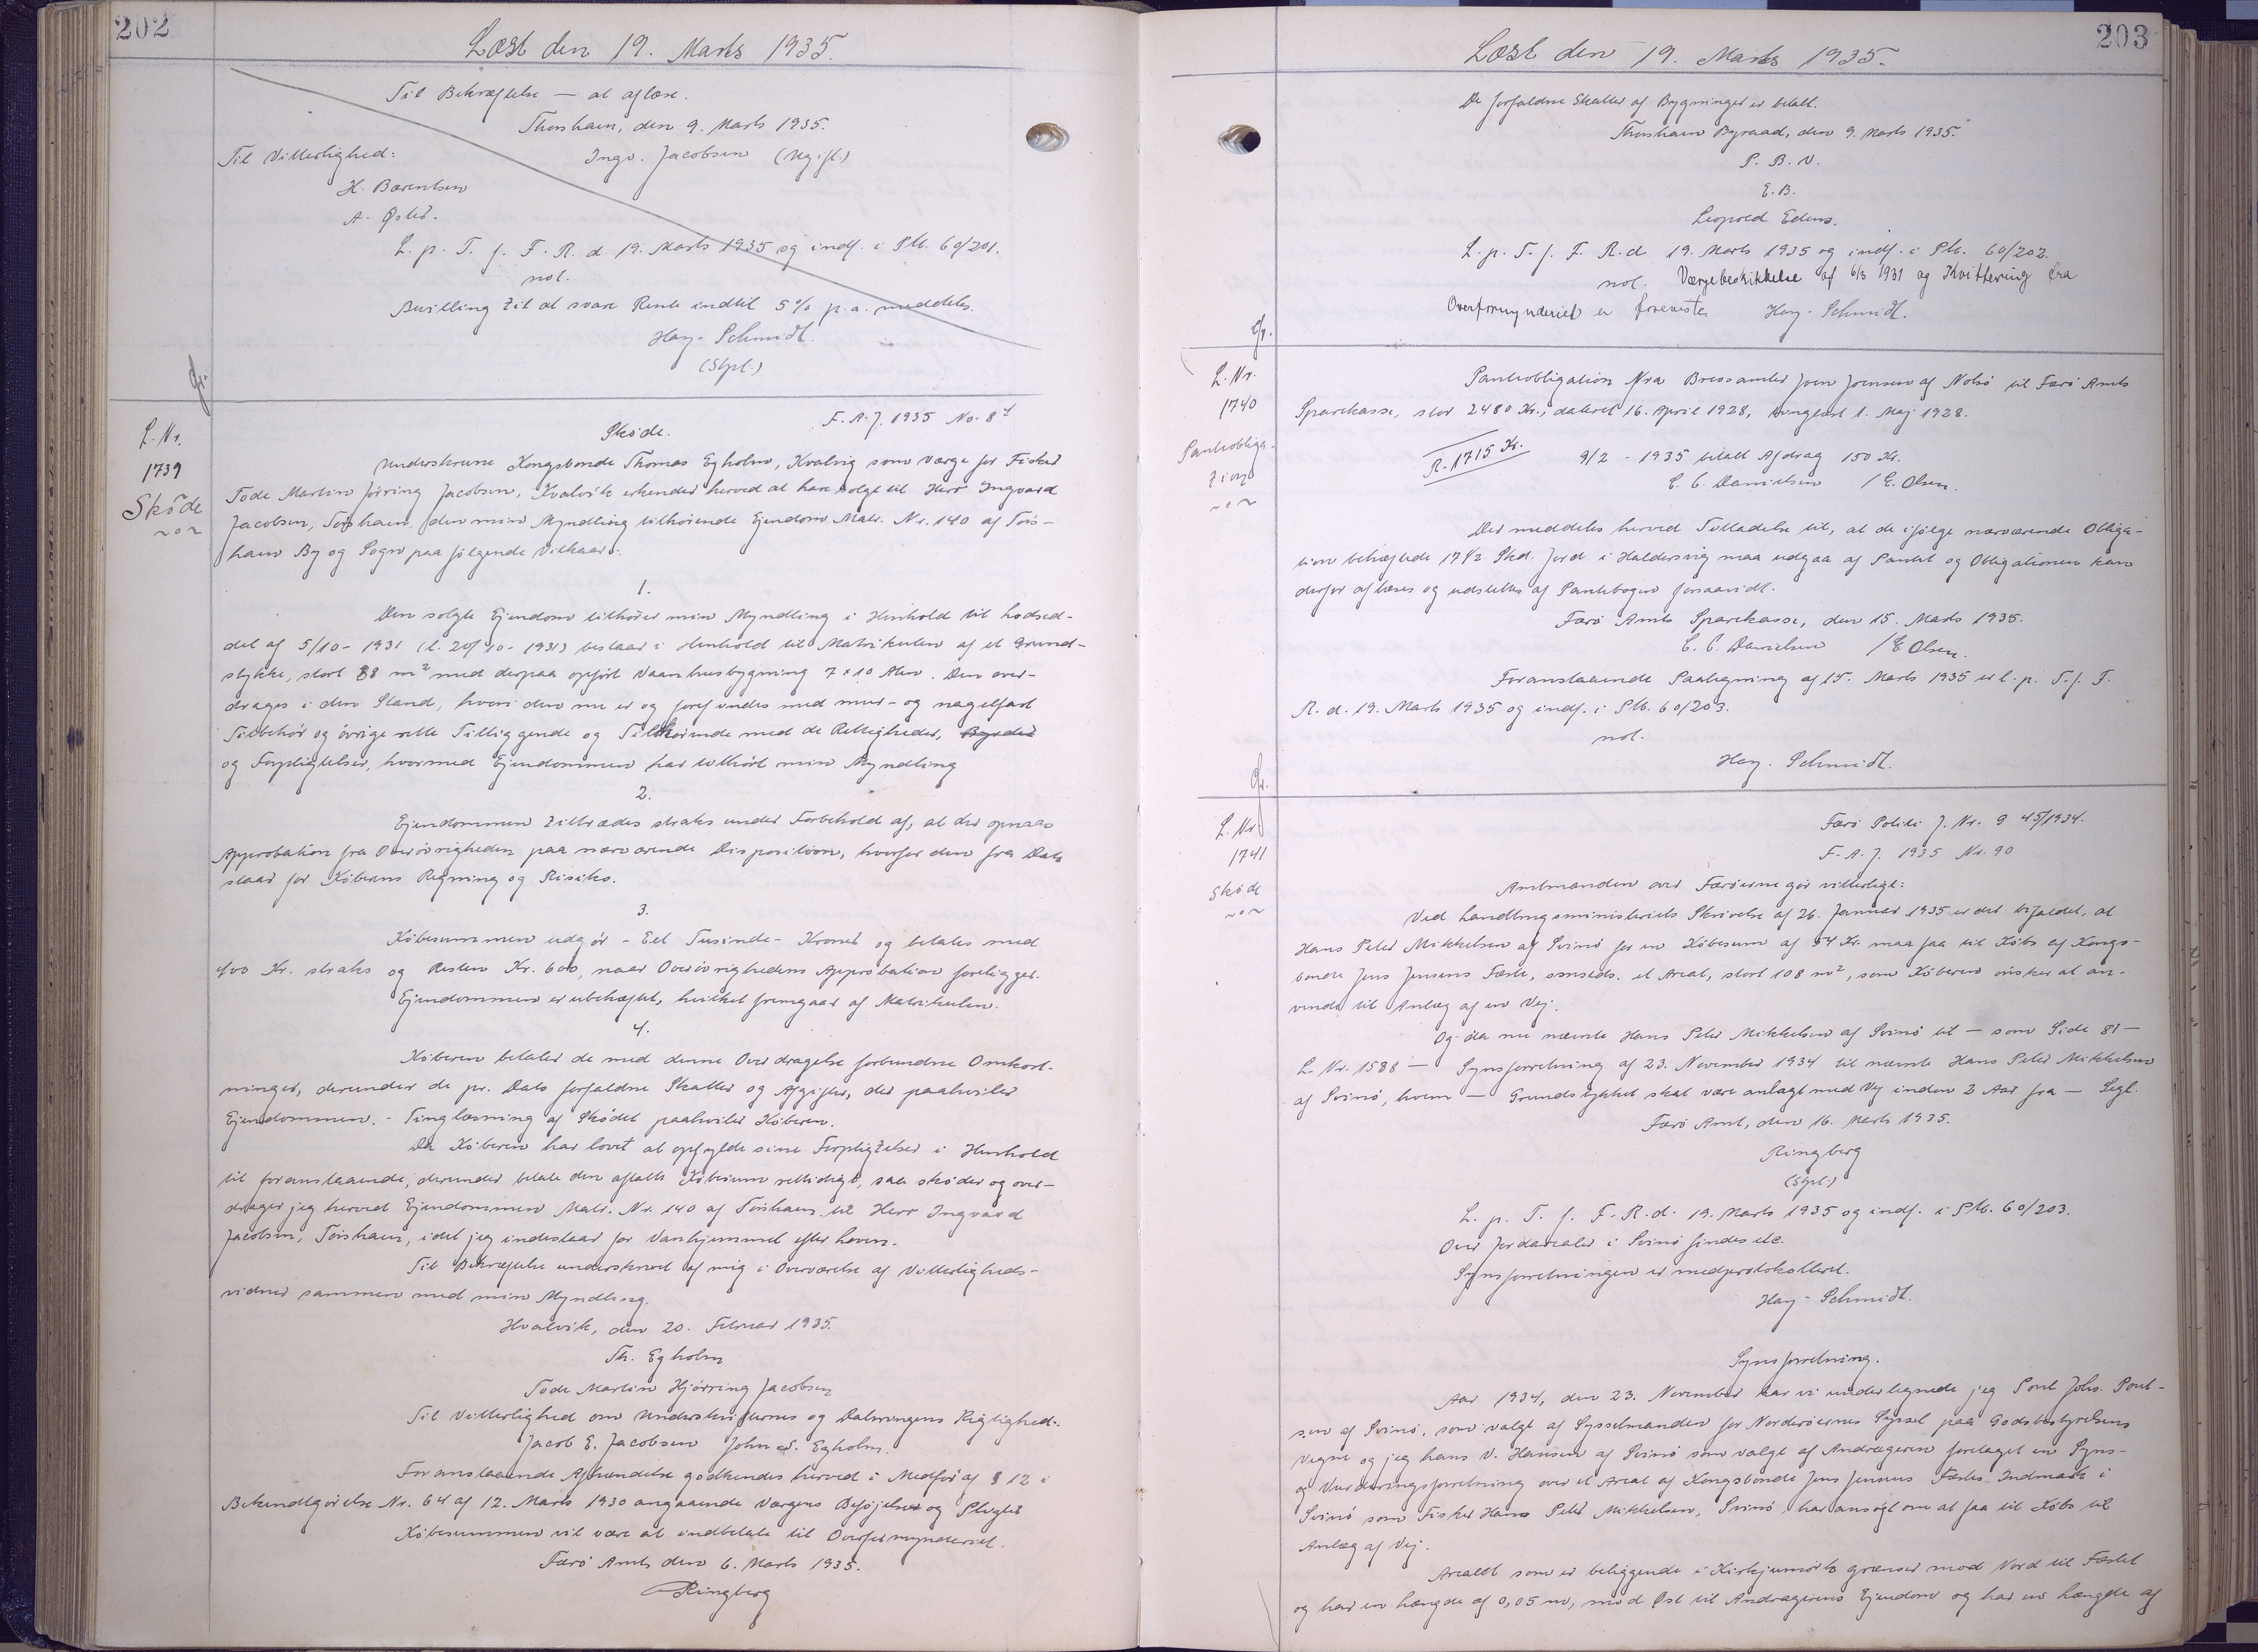 202
Læst den 19. Marts 1935.
Til Bekræftelse — at aflæse.
Thorshavn, den 9. Marts 1935.
Til Vitterlighed:
Ingv. Jacobsen (Ugift.)
H. Bærentsen
A.
L. p. T. f. F. R. d. 19. Marts 1935 og indf. i Ptb. 60/201.
not.
Bevilling til at svare Rente indtil 5% p.a. meddeles.
Hay-Schmidt.
(Stpl.)
L. Nr.
1739
Skøde
F.A.J. 1935 No. 87
Skøde.
Underskrevne Kongsbonde Thomas Egholm, Kvalvig som Værge for Fisker
Tode Martin Jörring Jacobsen, Kvalvik erkender herved at have solgt til Herr Ingvard
Jacobsen, Torshavn, den min Myndling tilhørende Ejendom Matr. Nr. 140 af Tórs-
havn By og Sogn paa følgende Vilkaar:
1.
Den solgte Ejendom tilhører min Myndling i Henhold til Lodsed-
del af 5/10-1931 (l. 20/10-1931) bestaar i Henhold til Matrikulen af et Grund-
stykke, stort 88 m² med derpaa opført Vaanhusbygning 7 x 10 Alen. Den over-
drages i den Stand, hvori den nu er og forefindes med mur- og nagelfast
Tilbehör og övrige rette Tilliggende og Tilhörende med de Rettigheder, Byrder
og Forpligtelser, hvormed Ejendommen har tilhört min Myndling
2.
Ejendommen tiltrædes straks under Forbehold af, at der opnaas
Approbation fra Overövrigheden paa nærværende Disposition, hvorfor den fra Dato
staar for Köberens Regning og Risiko.
3.
Köbesummen udgör - Eet Tusinde - Kroner og betales med
400 Kr. straks og Resten Kr. 600, naar Overövrighedens Approbation foreligger.
Ejendommen er ubehæftet, hvilket fremgaar af Matrikulen.
4.
Köberen betaler de med denne Overdragelse forbundne Omkost-
ninger, derunder de pr. Dato forfaldne Skatter og Afgifter, der paahviler
Ejendommen. - Tinglæsning af Sködet paahviler Köberen.
Da Köberen har lovet at opfylde sine Forpligtelser i Henhold
til foranstaaende, derunder betale den aftalte Köbesum rettidigt, saa sköder og over-
drager jeg herved Ejendommen Matr. Nr. 140 af Tórshavn til Herr Ingvard
Jacobsen, Tórshavn, idet jeg indestaar for Vanhjemmel efter Loven.
Til Bekræftelse underskrevet af mig i Overværelse af Vitterligheds-
vidner sammen med min Myndling.
Hvalvik, den 20. Februar 1935.
Th. Egholm
Tode Martin Hjörring Jacobsen
Til Vitterlighed om Underskrifternes og Dateringens Rigtighed:
Jacob E. Jacobsen John S. Egholm.
Foranstaaende Afhændelse godkendes herved i Medfør af § 12 i
Bekendtgörelse Nr. 64 af 12. Marts 1930 angaaende Værgens Beføjelser og Pligter
Köbesummen vil være at indbetale til Overformynderiet.
Færö Amt, den 6. Marts 1935.
Ringberg
203
Læst den 19. Marts 1935.
De forfaldne Skatter af Bygninger er betalt.
Thorshavn Byraad, den 9. Marts 1935.
P. B. V.
E.B.
Leopold Edens.
L. p. T. f. F. R. d. 19. Marts 1935 og indf. i Ptb. 60/202.
not. Værgebeskikkelse af 6/3 1931 og Kvittering fra
Overformynderiet er forevist. Hay-Schmidt.
L. Nr.
1740
Pantobliga-
tion
Panteobligation fra Joen Joensen af Nolsö til Færö Amts
Sparekasse, stor 2480 Kr., dateret 16. April 1928, tinglæst 1. Maj 1928.
R. 1715 Kr.
9/2 - 1935 betalt Afdrag 150 Kr.
C. C. Danielsen / E. Olsen.
Der meddeles herved Tilladelse til, at de ifølge nærværende Obliga-
tion behæftede 17 1/2 Skd. Jord i Haldersvig maa udgaa af Pantet og Obligationen kan
derfor aflæses og udslettes af Pantebogen forsaavidt.
Færö Amts Sparekasse, den 15. Marts 1935.
C. C. Danielsen / E Olsen.
Foranstaaende Paategning af 15. Marts 1935 er l. p. T. f. F.
R. d. 19. Marts 1935 og indf. i Ptb. 60/203.
not.
Hay-Schmidt.
L. Nr.
1741
Skøde
Færö Politi J. Nr. 9 45/1934.
F.A.J. 1935 Nr. 90
Amtmanden over Færöerne gör vitterligt:
Ved Landbrugsministeriets Skrivelse af 26. Januar 1935 er det bifaldet, at
Hans Peter Mikkelsen af Svinö for en Köbesum af 54 Kr. maa faa til Köbs af Kongs-
bonde Jens Jensens Fæste, sammesteds. et Areal, stort 108 m², som Köberen önsker at an-
vende til Anlæg af en Vej.
Og da nu nævnte Hans Peter Mikkelsen af Svinö til — som Side 81 —
L. Nr. 1588 — Synsforretning af 23. November 1934 til nævnte Hans Peter Mikkelsen
af Svinö, hvem — Grundstykket skal være anlagt med Vej inden 2 Aar fra — Segl.
Færö Amt, den 16. Marts 1935.
Ringberg
(Stpl.)
L. p. T. f. F. R. d. 19. Marts 1935 og indf. i Ptb. 60/203.
Over Jordarealer i Svinö findes etc.
Synsforretningen er medprotokolleret.
Hay-Schmidt.
Synsforretning.
Aar 1934, den 23. November har vi undertegnede jeg Poul Johs. Poul-
sen af Svinö, som valgt af Sysselmanden for Norderöernes Syssel paa Godsbestyrelsens
Vegne og jeg Hans V. Hansen af Svinö som valgt af Andrageren foretaget en Syns-
og Vurderingsforretning over et Areal af Kongsbonde Jens Jensens Fæste-Indmark i
Svinö som Fisker Hans Peter Mikkelsen, Svinö, har ansögt om at faa til Köbs til
Anlæg af Vej.
Arealet som er beliggende i Kirkjumörk grænser mod Nord til Fæstet
og har en Længde af 0,05 m, mod Øst til Andragerens Ejendom og har en Længde af